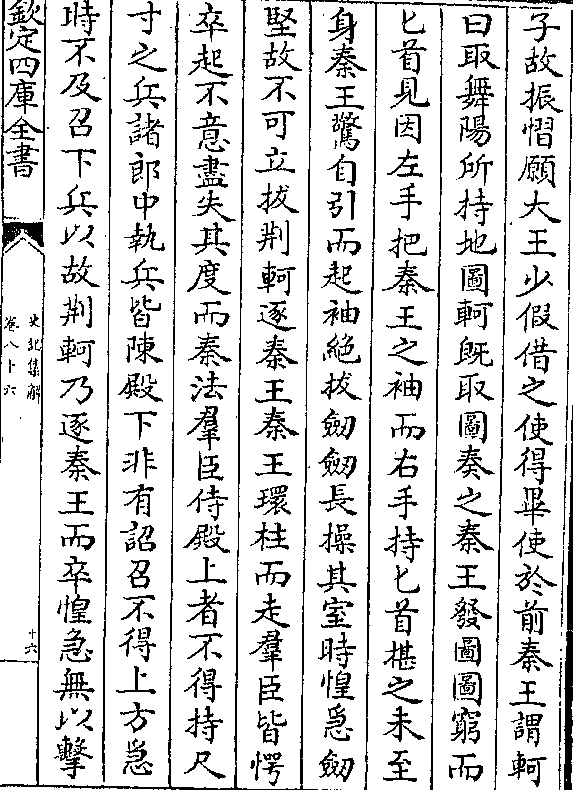 子故振慴願大王少假借之使得畢使於前秦王謂軻
曰取舞陽所持地圖軻既取圖奏之秦王發圖圖窮而
匕首見因左手把秦王之袖而右手持匕首揕之未至
身秦王驚自引而起袖絶拔劒劒長操其室時惶急劒
堅故不可立拔荆軻逐秦王秦王環柱而走羣臣皆愕
卒起不意盡失其度而秦法羣臣侍殿上者不得持尺
寸之兵諸郎中執兵皆陳殿下非有詔召不得上方急
時不及召下兵以故荆軻乃逐秦王而卒惶急無以擊
欽定四庫全書
史記集解
卷八十六
十六